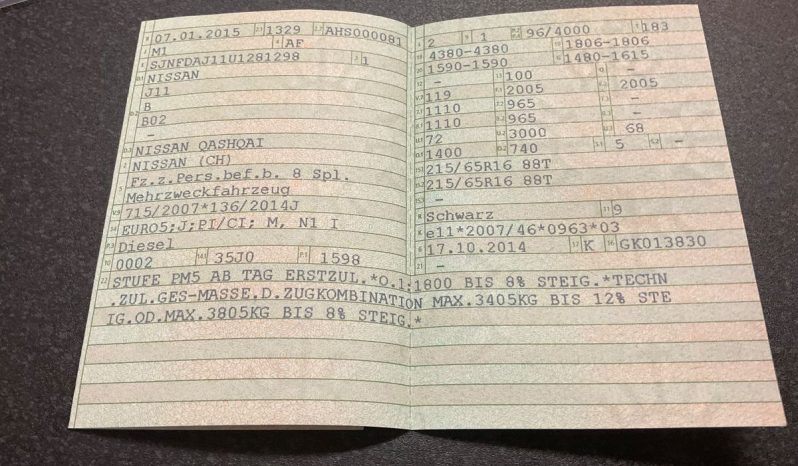 07.01.2015 1329 AHS000081
M1 AF
SJNFDAJ11U1281298 1
NISSAN
J11
B
B02
–
NISSAN QASHQAI
NISSAN (CH)
Fz.z.Pers.bef.b. 8 Spl.
Mehrzweckfahrzeug
715/2007*136/2014J
EURO5;J;PI/CI; M, N1 I
Diesel
0002 35J0 1598
2 1 96/4000 183
4380-4380 1806-1806
1590-1590 1480-1615
– 100 –
119 2005 2005
1110 965 –
1110 965 –
72 3000 68
1400 740 5 –
215/65R16 88T
215/65R16 88T
–
Schwarz 9
e11*2007/46*0963*03
17.10.2014 K GK013830
–
22 STUFE PM5 AB TAG ERSTZUL.*O.1:1800 BIS 8% STEIG.*TECHN
.ZUL.GES-MASSE.D.ZUGKOMBINATION MAX.3405KG BIS 12% STE
IG.OD.MAX.3805KG BIS 8% STEIG.*